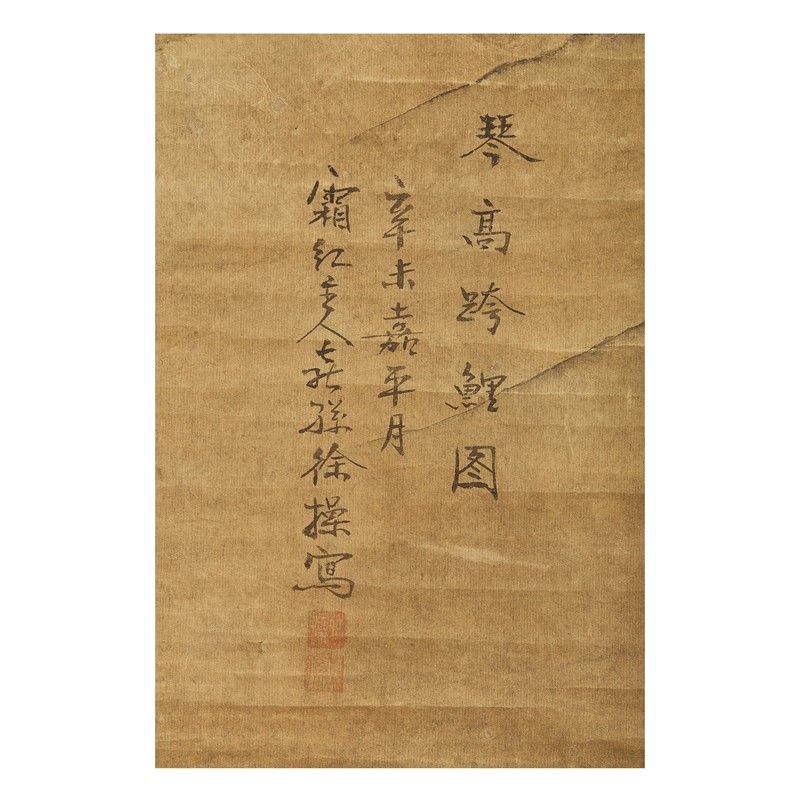 琴高跨鯉图
辛未嘉平月
霜紅主人燕孫徐操寫